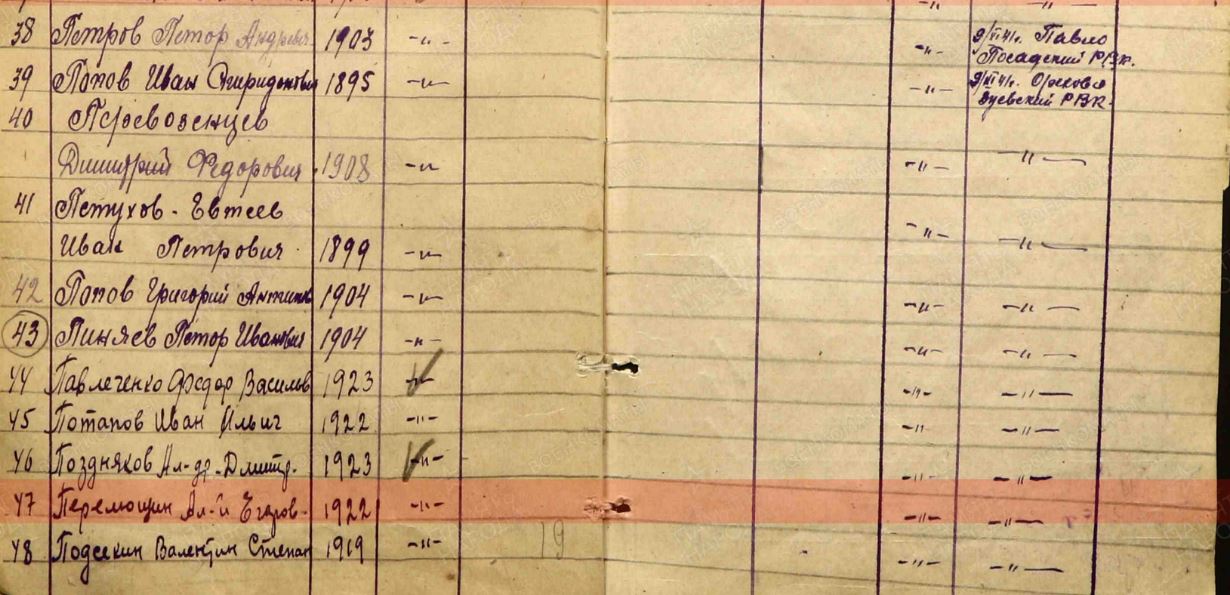 -"- -"-
38 Петров Петор Андреев. 1903 -"- -"- 9/VI 41г. Павло
Посадский РВК.
39 Попов Иван Спиридонович 1895 -"- -"- 9/XI 41г. Орехово
Зуевский РВК.
40 Перевозенцев
Димитрий Федорович. 1908 -"- -"- -"-
41 Петухов - Евтеев
Иван Петрович. 1899 -"- -"- -"-
42 Попов Григорий Антипов 1904 -"- -"- -"-
43 Пиняев Петор Иванович 1904 -"- -"- -"-
44 Павлеченко Федор Васильв 1923 -"- -"- -"-
45 Потапов Иван Ильич 1922 -"- -"- -"-
46 Поздняков Ал-др. Дмитр. 1923 -"- -"- -"-
47 Ал-й Егоров- 1922 -"- -"- -"-
48 Подсекин Валентин Степан 1919 -"- 19 -"- -"-